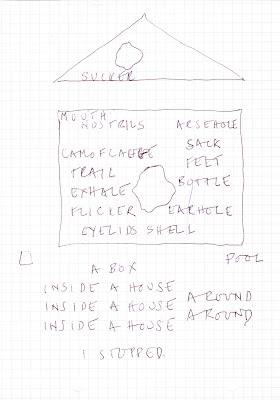 SUCKER
MOUTH
NOSTRILS ARSEHOLE
SACK
CAMOFLAGE FELT
TRAIL BOTTLE
EXHALE
FLICKER EARHOLE
EYELIDS SHELL
POOL
A BOX
INSIDE A HOUSE
INSIDE A HOUSE AROUND
INSIDE A HOUSE AROUND
I STOPPED.